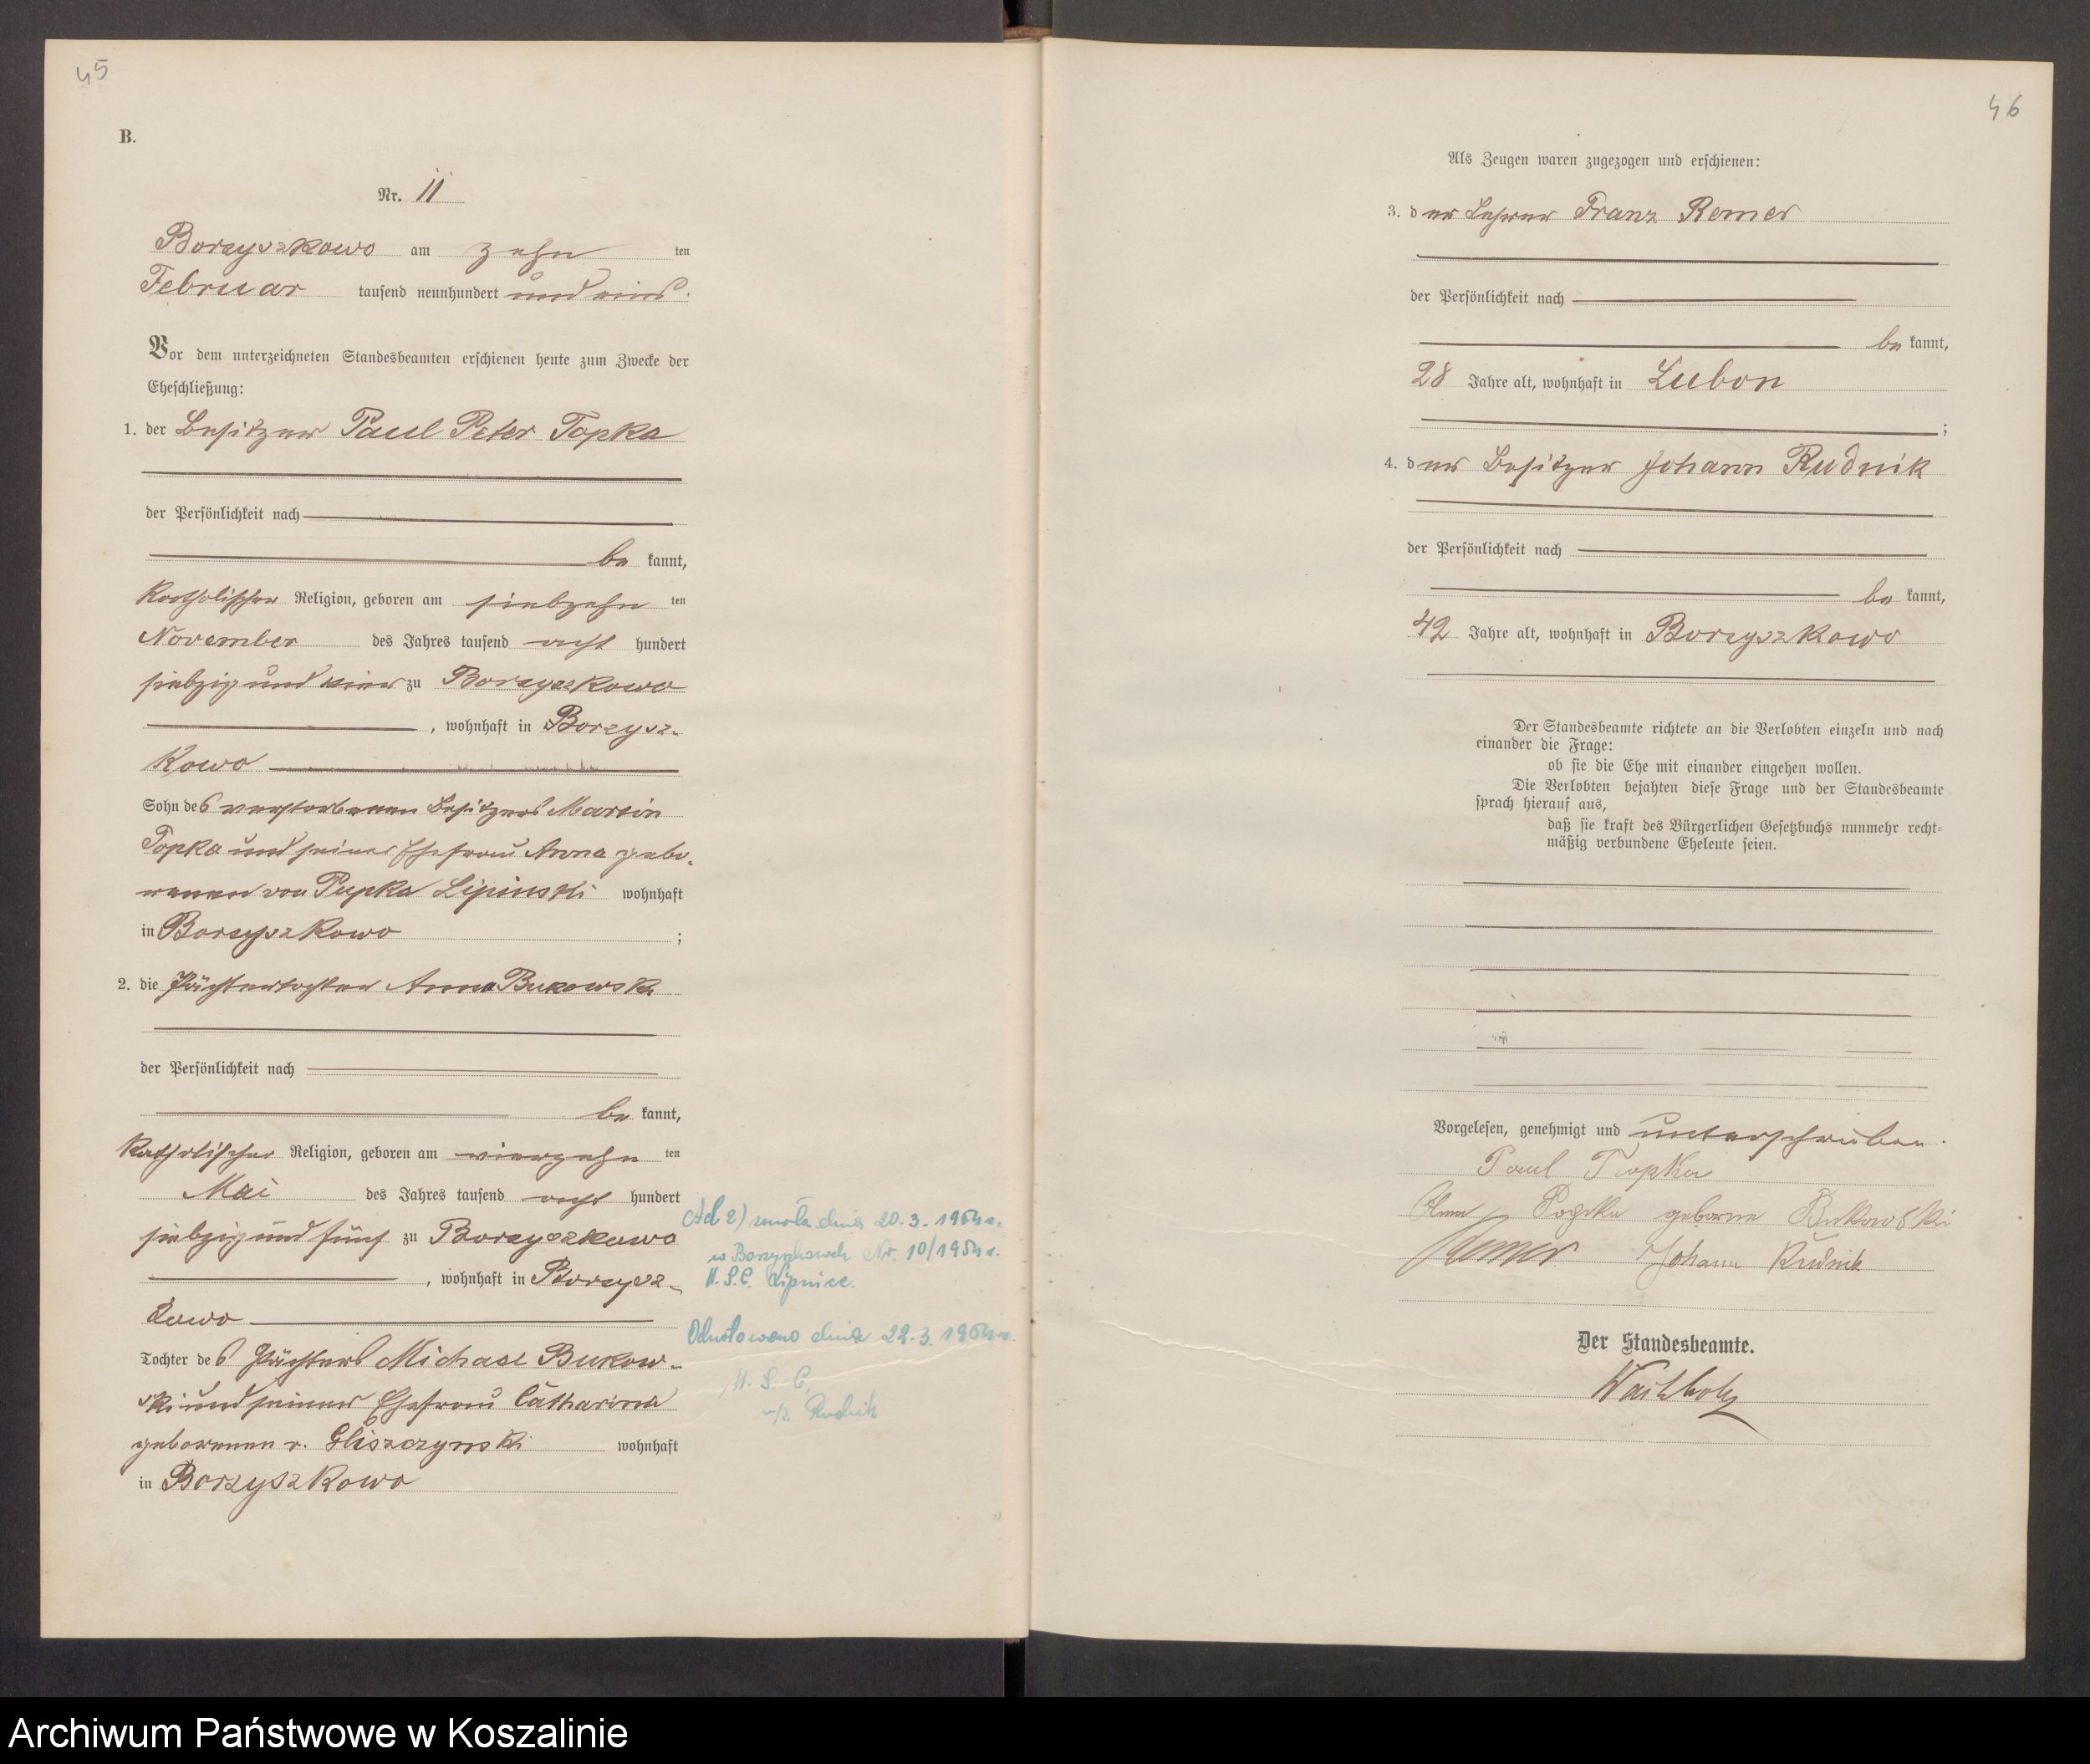 45
B.
Nr. 11
Borzyszkowo am zehn ten
Februar tausend neunhundert und eins.
Vor dem unterzeichneten Standesbeamten erschienen heute zum Zwecke der
Eheschließung:
1. der Besitzer Paul Peter Topka
der Persönlichkeit nach
be kannt,
katholischer Religion, geboren am siebzehn ten
November des Jahres tausend acht hundert
siebzig und vier zu Borzyszkowo
, wohnhaft in Borzysz-
kowo
Sohn des verstorbenen Besitzers Martin
Topka und seiner Ehefrau Anna gebo-
renen von Pupka Lipinski wohnhaft
in Borzyszkowo ;
2. die Pächtertochter Anna Bukowski
der Persönlichkeit nach
be kannt,
katholischer Religion, geboren am vierzehn ten
Mai des Jahres tausend acht hundert
siebzig und fünf zu Borzyszkowo
, wohnhaft in Borzysz-
kowo
Tochter des Pächters Michael Bukow-
ski und seiner Ehefrau Catharina
geborenen v. Gliszczynski wohnhaft
in Borzyszkowo
Ad 2) zmarła dnia 20.3.1954 r.
w Borzyszkowach Nr. 10/1954 r.
U.S.C. Lipnica.
Odnotowano dnia 22.3.1954 r.
U.S.C.
Rudnik
46
Als Zeugen waren zugezogen und erschienen:
3. der Lehrer Franz Remer
der Persönlichkeit nach
be kannt,
28 Jahre alt, wohnhaft in Lubon
;
4. der Besitzer Johann Rudnik
der Persönlichkeit nach
be kannt,
42 Jahre alt, wohnhaft in Borzyszkowo
Der Standesbeamte richtete an die Verlobten einzeln und nach
einander die Frage:
ob sie die Ehe mit einander eingehen wollen.
Die Verlobten bejahten diese Frage und der Standesbeamte
sprach hierauf aus,
daß sie kraft des Bürgerlichen Gesetzbuchs nunmehr recht-
mäßig verbundene Eheleute seien.
Vorgelesen, genehmigt und unterschrieben.
Paul Topka
Anna Topka geborne Bukowski
Remer Johann Rudnik
Der Standesbeamte.
Archiwum Państwowe w Koszalinie